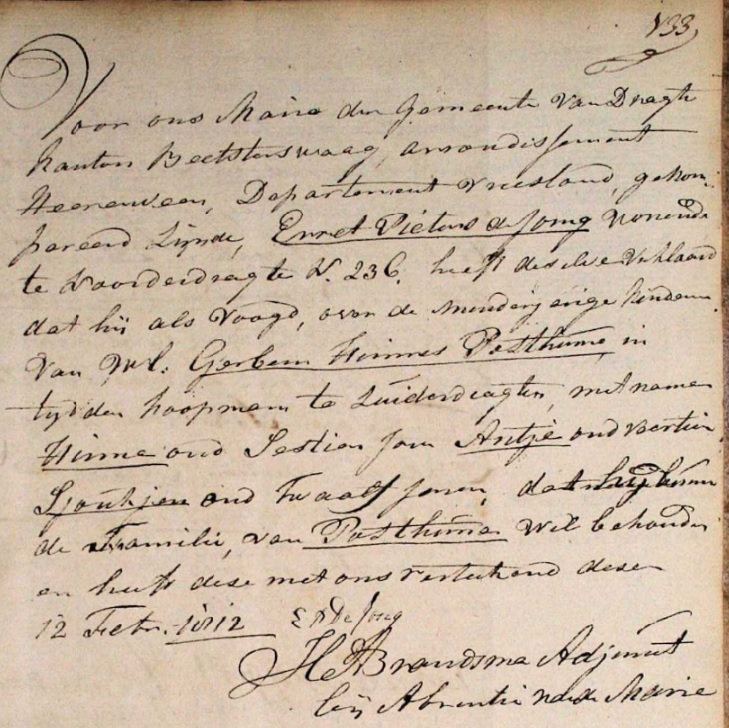 133
Voor ons Maire der Gemeente Van Dragte
Kanton Beetsterswaag, arrondissement
Heerenveen, Departement Vriesland, gekom-
pareerd Zijnde, Erret Pieters de Jong wonende
te Noorderdragte N. 236, heeft deselve Verklaard
dat hij als Voogd, over de minderjarige kinderen
Van Wl. Gerben Hinnes Posthuma, in
tyd den koopman te Zuiderdragten, met name
Hinne oud Sestien Jaar Antje oud veertien
Sjoukjen oud Twaalf Jaren, dat hij hun
de Familie, van Posthuma wil behouden
en heeft dese met ons Vertekend desen
12 Febr. 1812 E P de Jong
H A Brandsma Adjunct
bij Absentie van de Marie